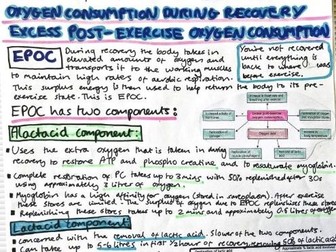 OXYGEN CONSUMPTION DURING RECOVERY
EXCESS POST-EXERCISE OXYGEN CONSUMPTION
EPOC
During recovery the body takes in
elevated amounts of oxygen and
transports it to the working muscles
to maintain high rates of aerobic respiration.
This surplus energy is then used to help return the body to its pre-
exercise state. This is EPOC.
You're not recovered
until everything is
back to where it was
before exercise.
EPOC has two components:
Alactacid component:
Uses the extra oxygen that is taken in during
recovery to restore ATP and phospho creatine and to resaturate myoglobin.
Complete restoration of PC takes up to 3 mins with 50% replenished after 30s
using approximately 3 litres of oxygen.
Myoglobin has a high affinity for oxygen
these stores are limited. The surplus of oxygen in EPOC replenishes these stores
Replenishing these stores takes up to 2 mins and approximately 0.5 litres of oxygen
Lactacid component
concerned with the removal of lactic acid. Slower of the two components.
Can take up to 5-6 litres in first 1/2 hour of recovery removing 50% of lactic